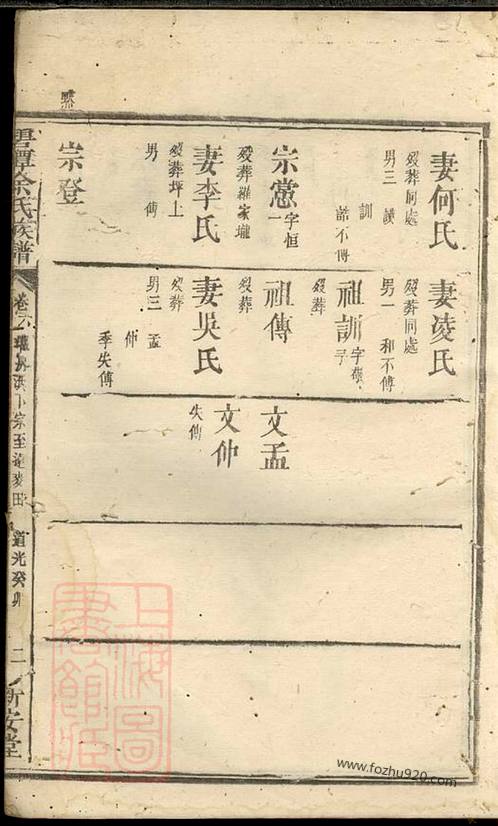 妻何氏
歿葬同處
男三 謨
訓
誥不傳
宗憲字恒一
歿葬羅家壠
妻李氏
歿葬坪上
男 傳
宗登
妻凌氏
歿葬同處
男一 和不傳
祖訓字
歿葬
祖傳
歿葬
妻吳氏
歿葬
男三 孟
仲
季失傳
文孟
文仲
失傳
余氏族譜
卷
道光癸卯
二
新安堂
上海圖書館藏
www.fozhu920.com